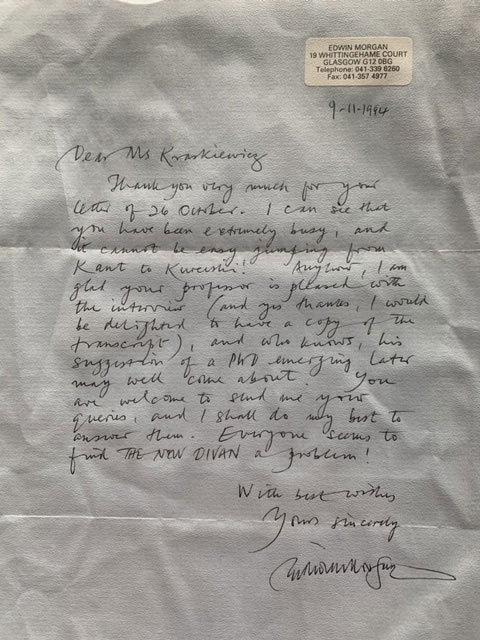 EDWIN MORGAN
19 WHITTINGEHAME COURT
GLASGOW G12 0BG
Telephone: 041-339 6260
Fax: 041-357 4977
9-11-1994
Dear Ms Kraskiewicz
Thank you very much for your
letter of 26 October. I can see that
you have been extremely busy, and
it cannot be easy jumping from
Kant to Kureishi! Anyhow, I am
glad your professor is pleased with
the interview (and yes thanks, I would
be delighted to have a copy of the
transcript), and who knows, his
suggestion of a PhD emerging later
may well come about. You
are welcome to send me your
queries, and I shall do my best to
answer them. Everyone seems to
find THE NEW DIVAN a problem!
With best wishes
Yours sincerely
Edwin Morgan